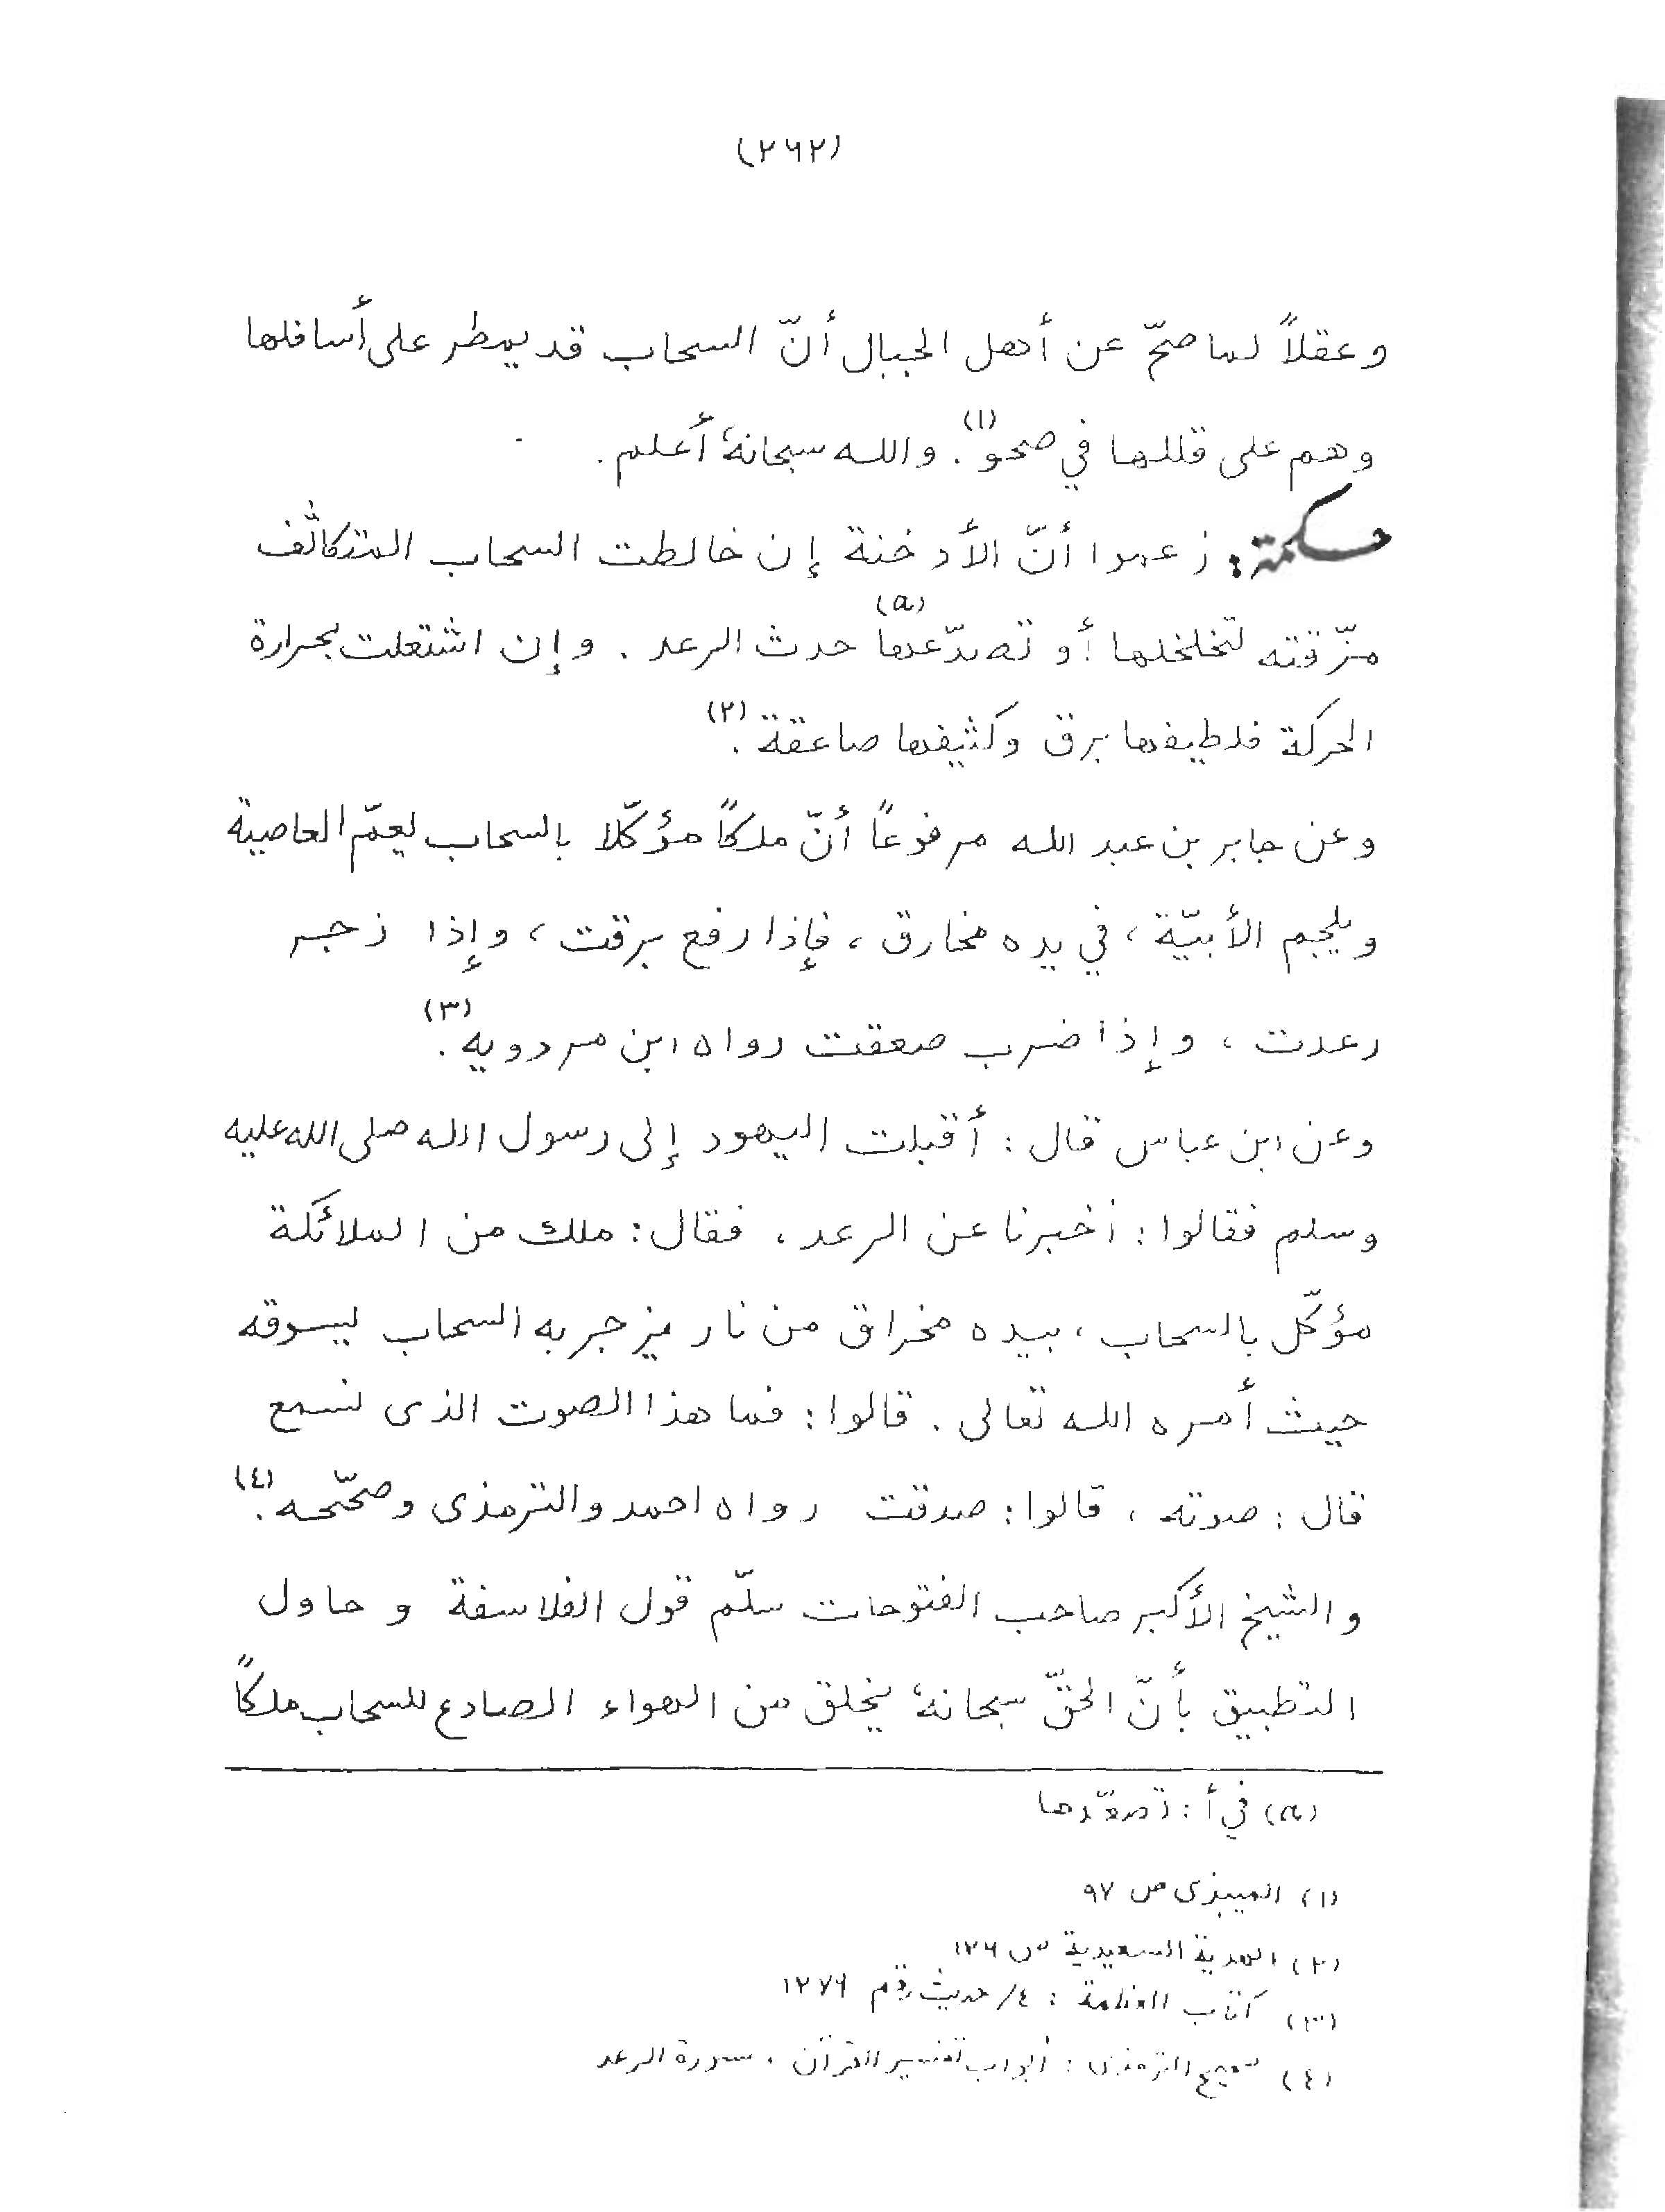 (٢٦٢)
وعقلاً لما صحّ عن أهل الجبال أنّ السحاب قد يمطر على أسافلها
وهم على قللها في صحو(١). والله سبحانهُ أعلم.
حكمة: زعموا أنّ الأدخنة إن خالطت السحاب المتكاثف
مزّقته لتخلخلها أو تصدّعها(a) حدث الرعد. وإن اشتعلت بحرارة
الحركة فلطيفها برق وكثيفها صاعقة(٢).
وعن جابر بن عبد الله مرفوعاً أنّ ملكاً مؤكّلا بالسحاب يعمّ العاصية
ويلجم الأبيّة، في يده مخارق، فإذا رفع برقت، وإذا زجر
رعدت، وإذا ضرب صعقت رواه ابن مردويه(٣).
وعن ابن عباس قال: أقبلت اليهود إلى رسول الله صلى الله عليه
وسلم فقالوا: أخبرنا عن الرعد، فقال: ملك من الملائكة
مؤكّل بالسحاب، بيده مخراق من نار يزجر به السحاب ليسوقه
حيث أمره الله تعالى. قالوا: فما هذا الصوت الذى نسمع
قال: صوته، قالوا: صدقت رواه احمد والترمذى وصحّحه(٤).
والشيخ الأكبر صاحب الفتوحات سلّم قول الفلاسفة وحاول
التطبيق بأنّ الحقّ سبحانهُ يخلق من الهواء الصادع للسحاب ملكاً
(a) في أ: تصعّدها
(١) الميبذى ص ٩٧
(٢) الهدية السعيدية ص ١٢٦
(٣) كتاب العظمة: ٤/ حديث رقم ١٢٧٦
(٤) صحيح الترمذى: أبواب تفسير القرآن، سورة الرعد